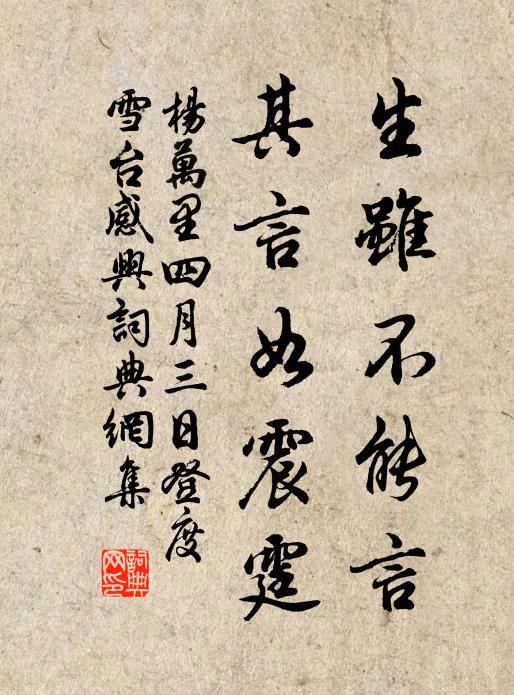 生雖不能言
其言如震霆
楊萬里四月三日登度
雪台感興詞典網集
詞典网印